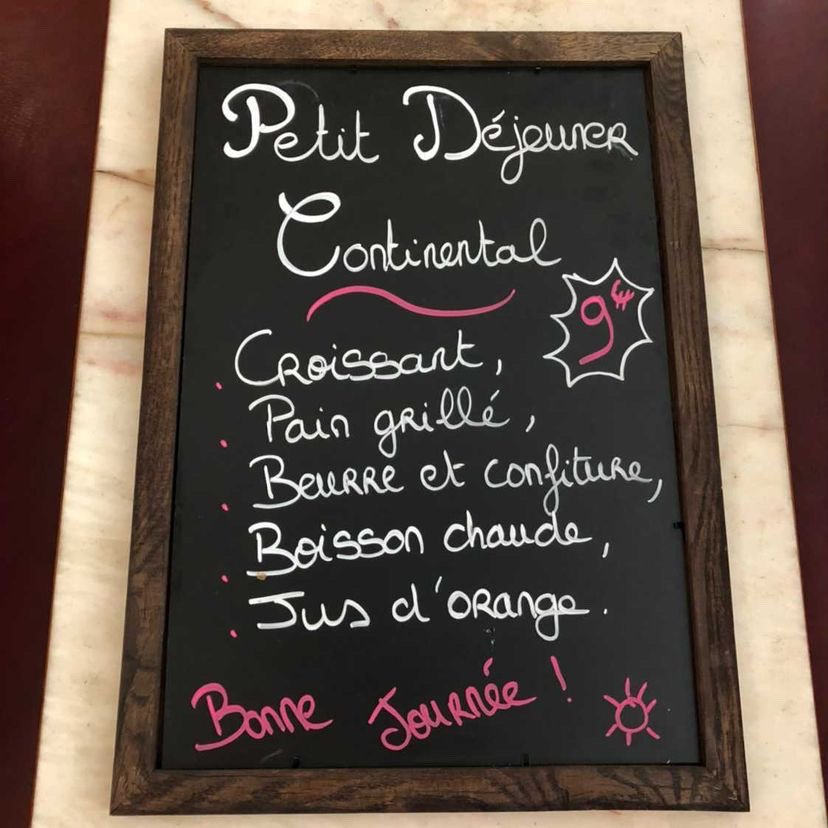 Petit Déjeuner
Continental
9€
Croissant,
Pain grillé,
Beurre et confiture,
Boisson chaude,
Jus d'orange.
Bonne Journée !